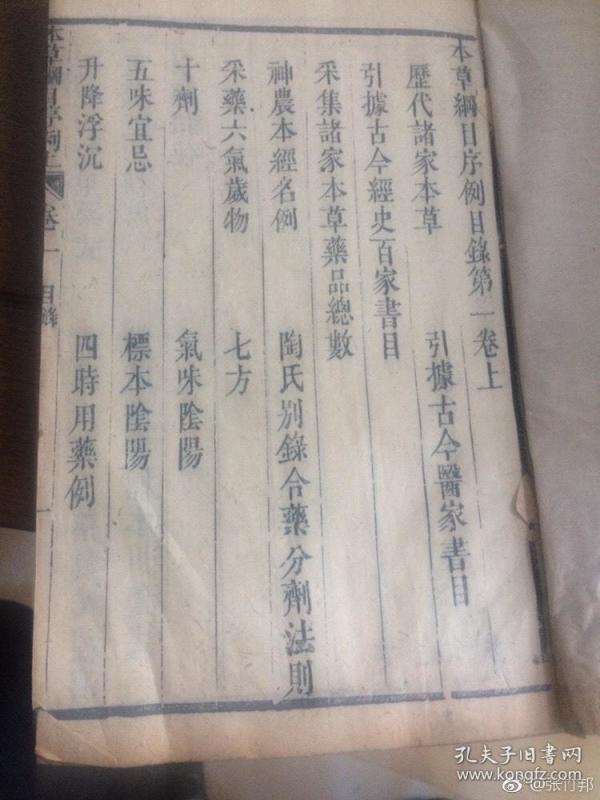 本草綱目序例目錄第一卷上
歷代諸家本草　引據古今醫家書目
引據古今經史百家書目
采集諸家本草藥品總數
神農本經名例　陶氏別錄合藥分劑法則
采藥六氣歲物　七方
十劑　氣味陰陽
五味宜忌　標本陰陽
升降浮沉　四時用藥例
本草綱目序例　卷一　目錄
孔夫子旧书网
www.kongfz.com
@张竹邦